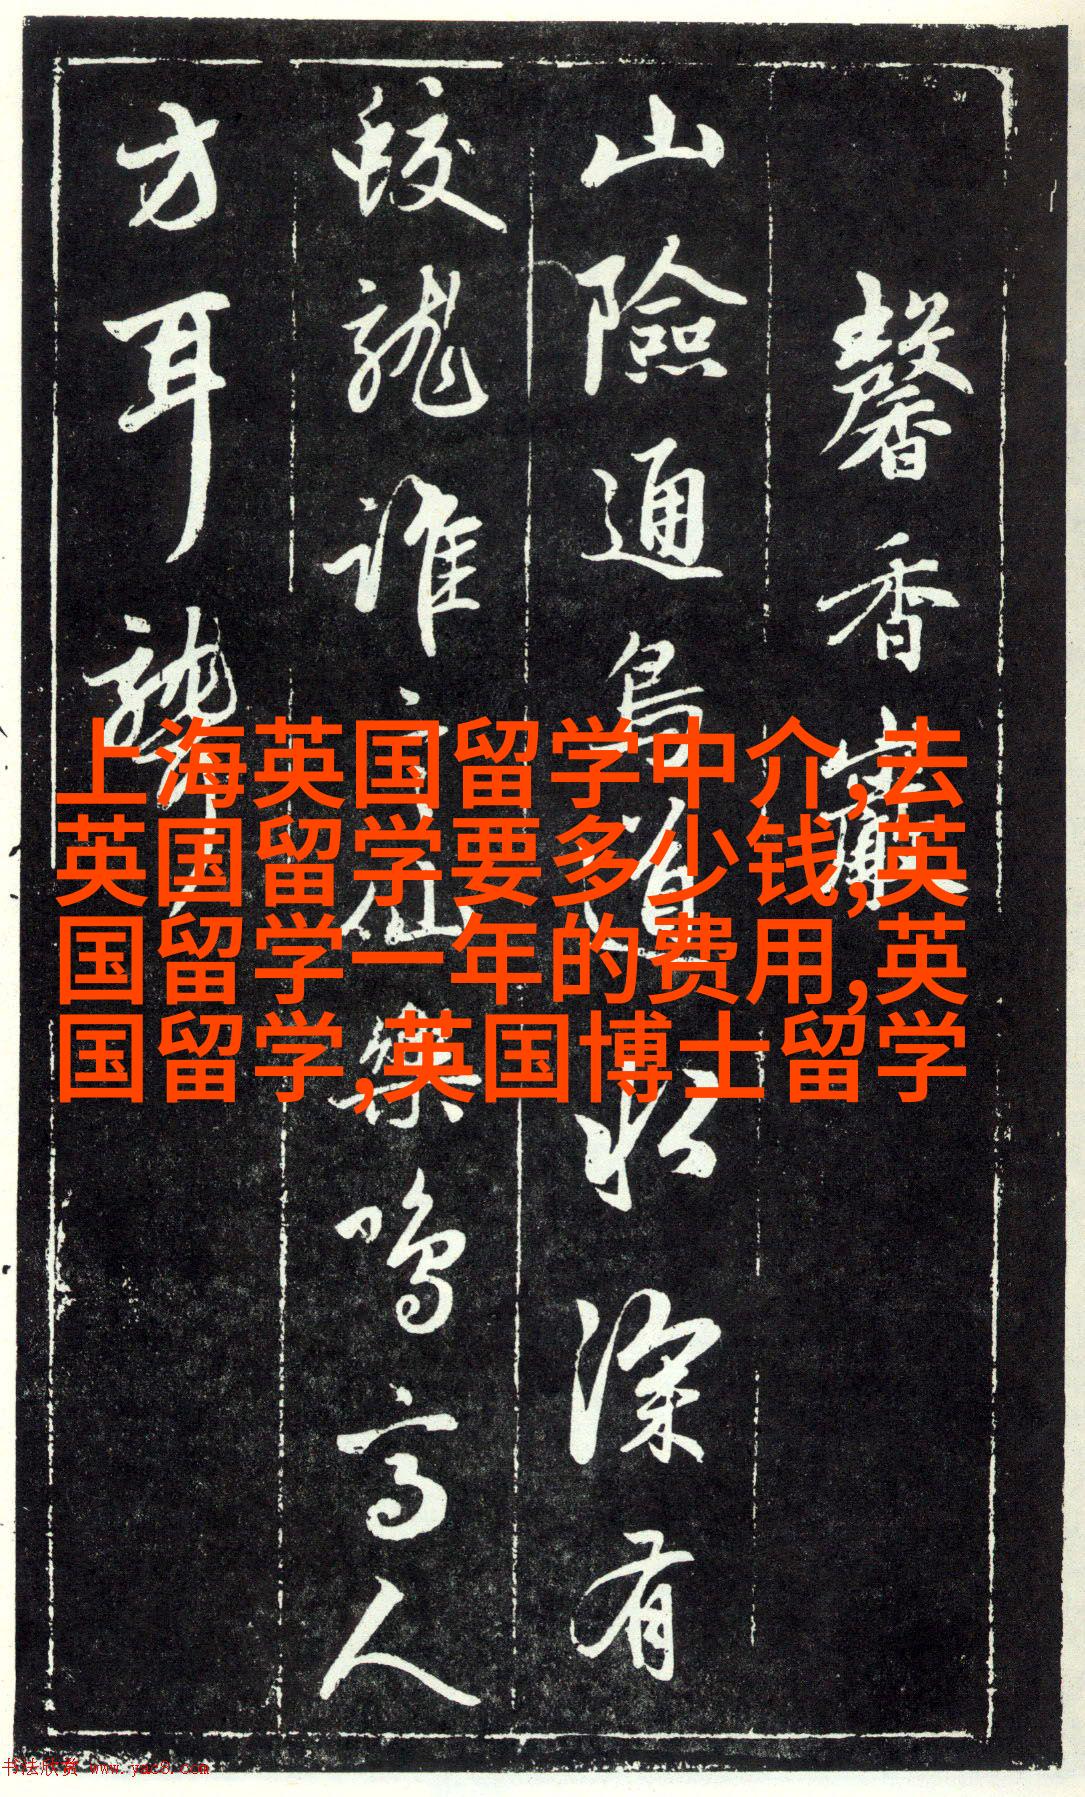 上海英国留学中介,去
英国留学要多少钱,英
国留学一年的费用,英
国留学,英国博士留学
馨香
山險通鳥道深有
蛟龍誰仙樂鳴高人
方耳聾
书法欣赏 www.yac8.com